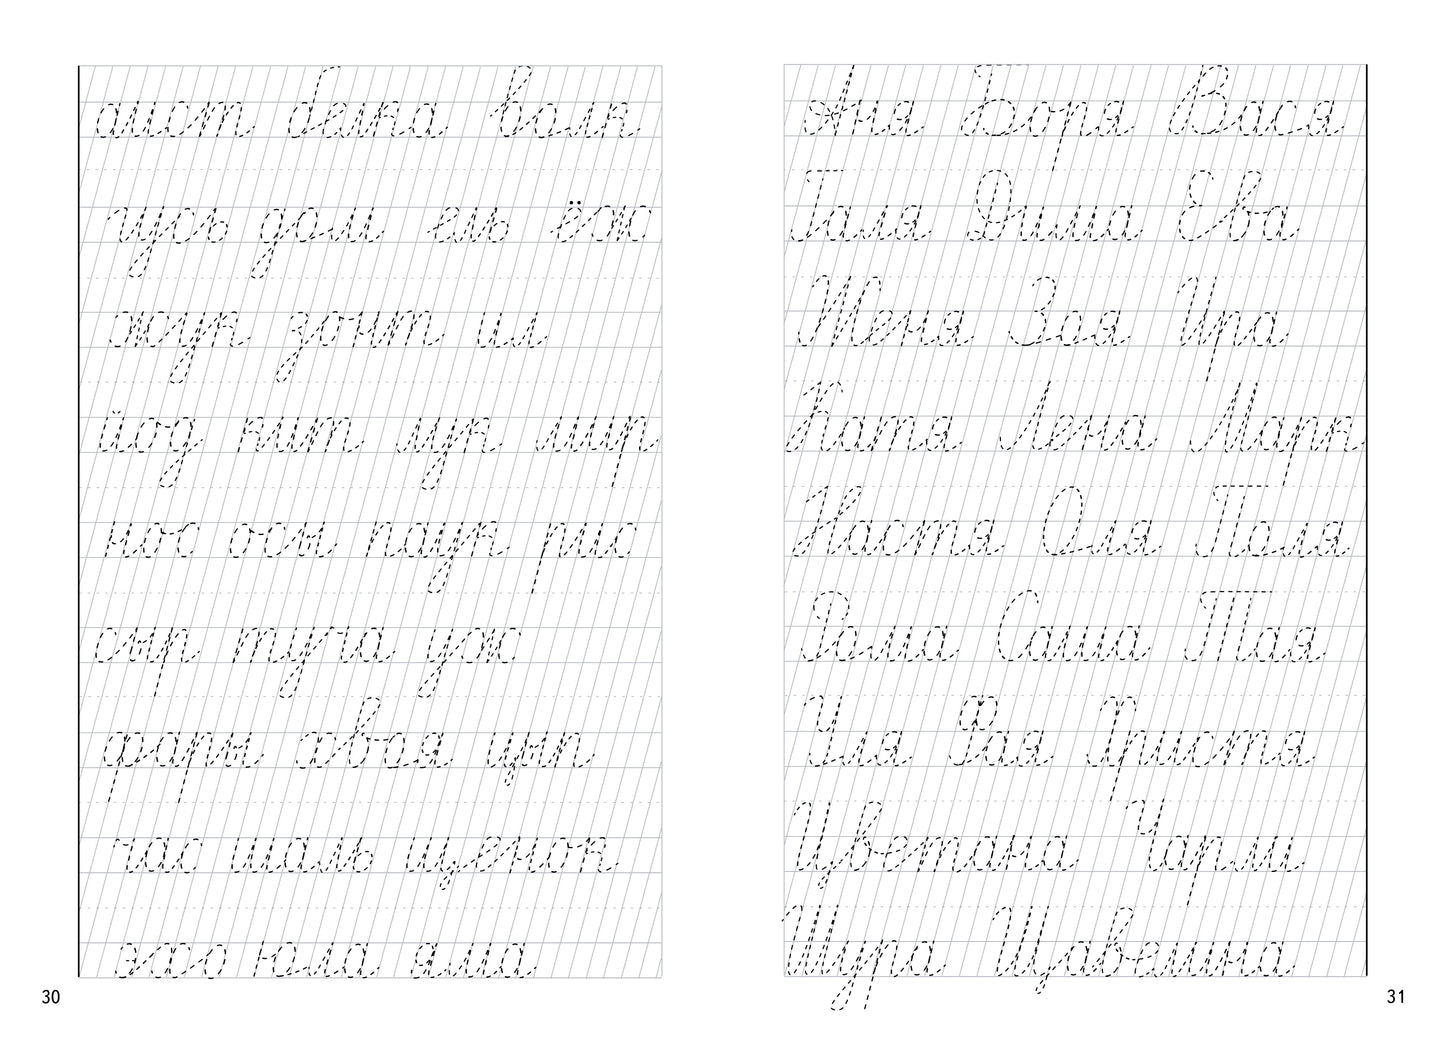 аист белка волк
гусь дом ель ёж
жук зонт ил
йод кит лук мир
нос паук рис
сыр туча уж
хвоя
час шаль щенок
эхо юла яма
30
Аня Боря Вася
Галя Дима Ева
Женя Зоя Ира
Катя Лена Марк
Настя Оля Поля
Рома Саша Тая
Уля Фая Христя
Цветана Чарли
Шура Щавелина
31